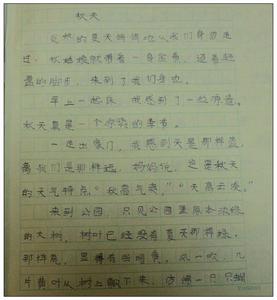 秋天
炎热的夏天悄悄地从我们身边走
过，秋姑娘就带着一身金黄，迈着轻
盈的脚步，来到了我们身边。
早上一起床，我感到了一丝凉意。
秋天真是一个凉爽的季节。
一走出家门，我感到天是那样蓝，
离我们是那样远，妈妈说，这是秋天
的天气特点“秋高气爽”“天高云淡”。
来到公园，只见公园里原本浓绿
的大树，树叶已经没有夏天那样绿，
那样亮，显得有些
风一吹，几
片黄叶从树上飘下来，仿佛一只只蝴